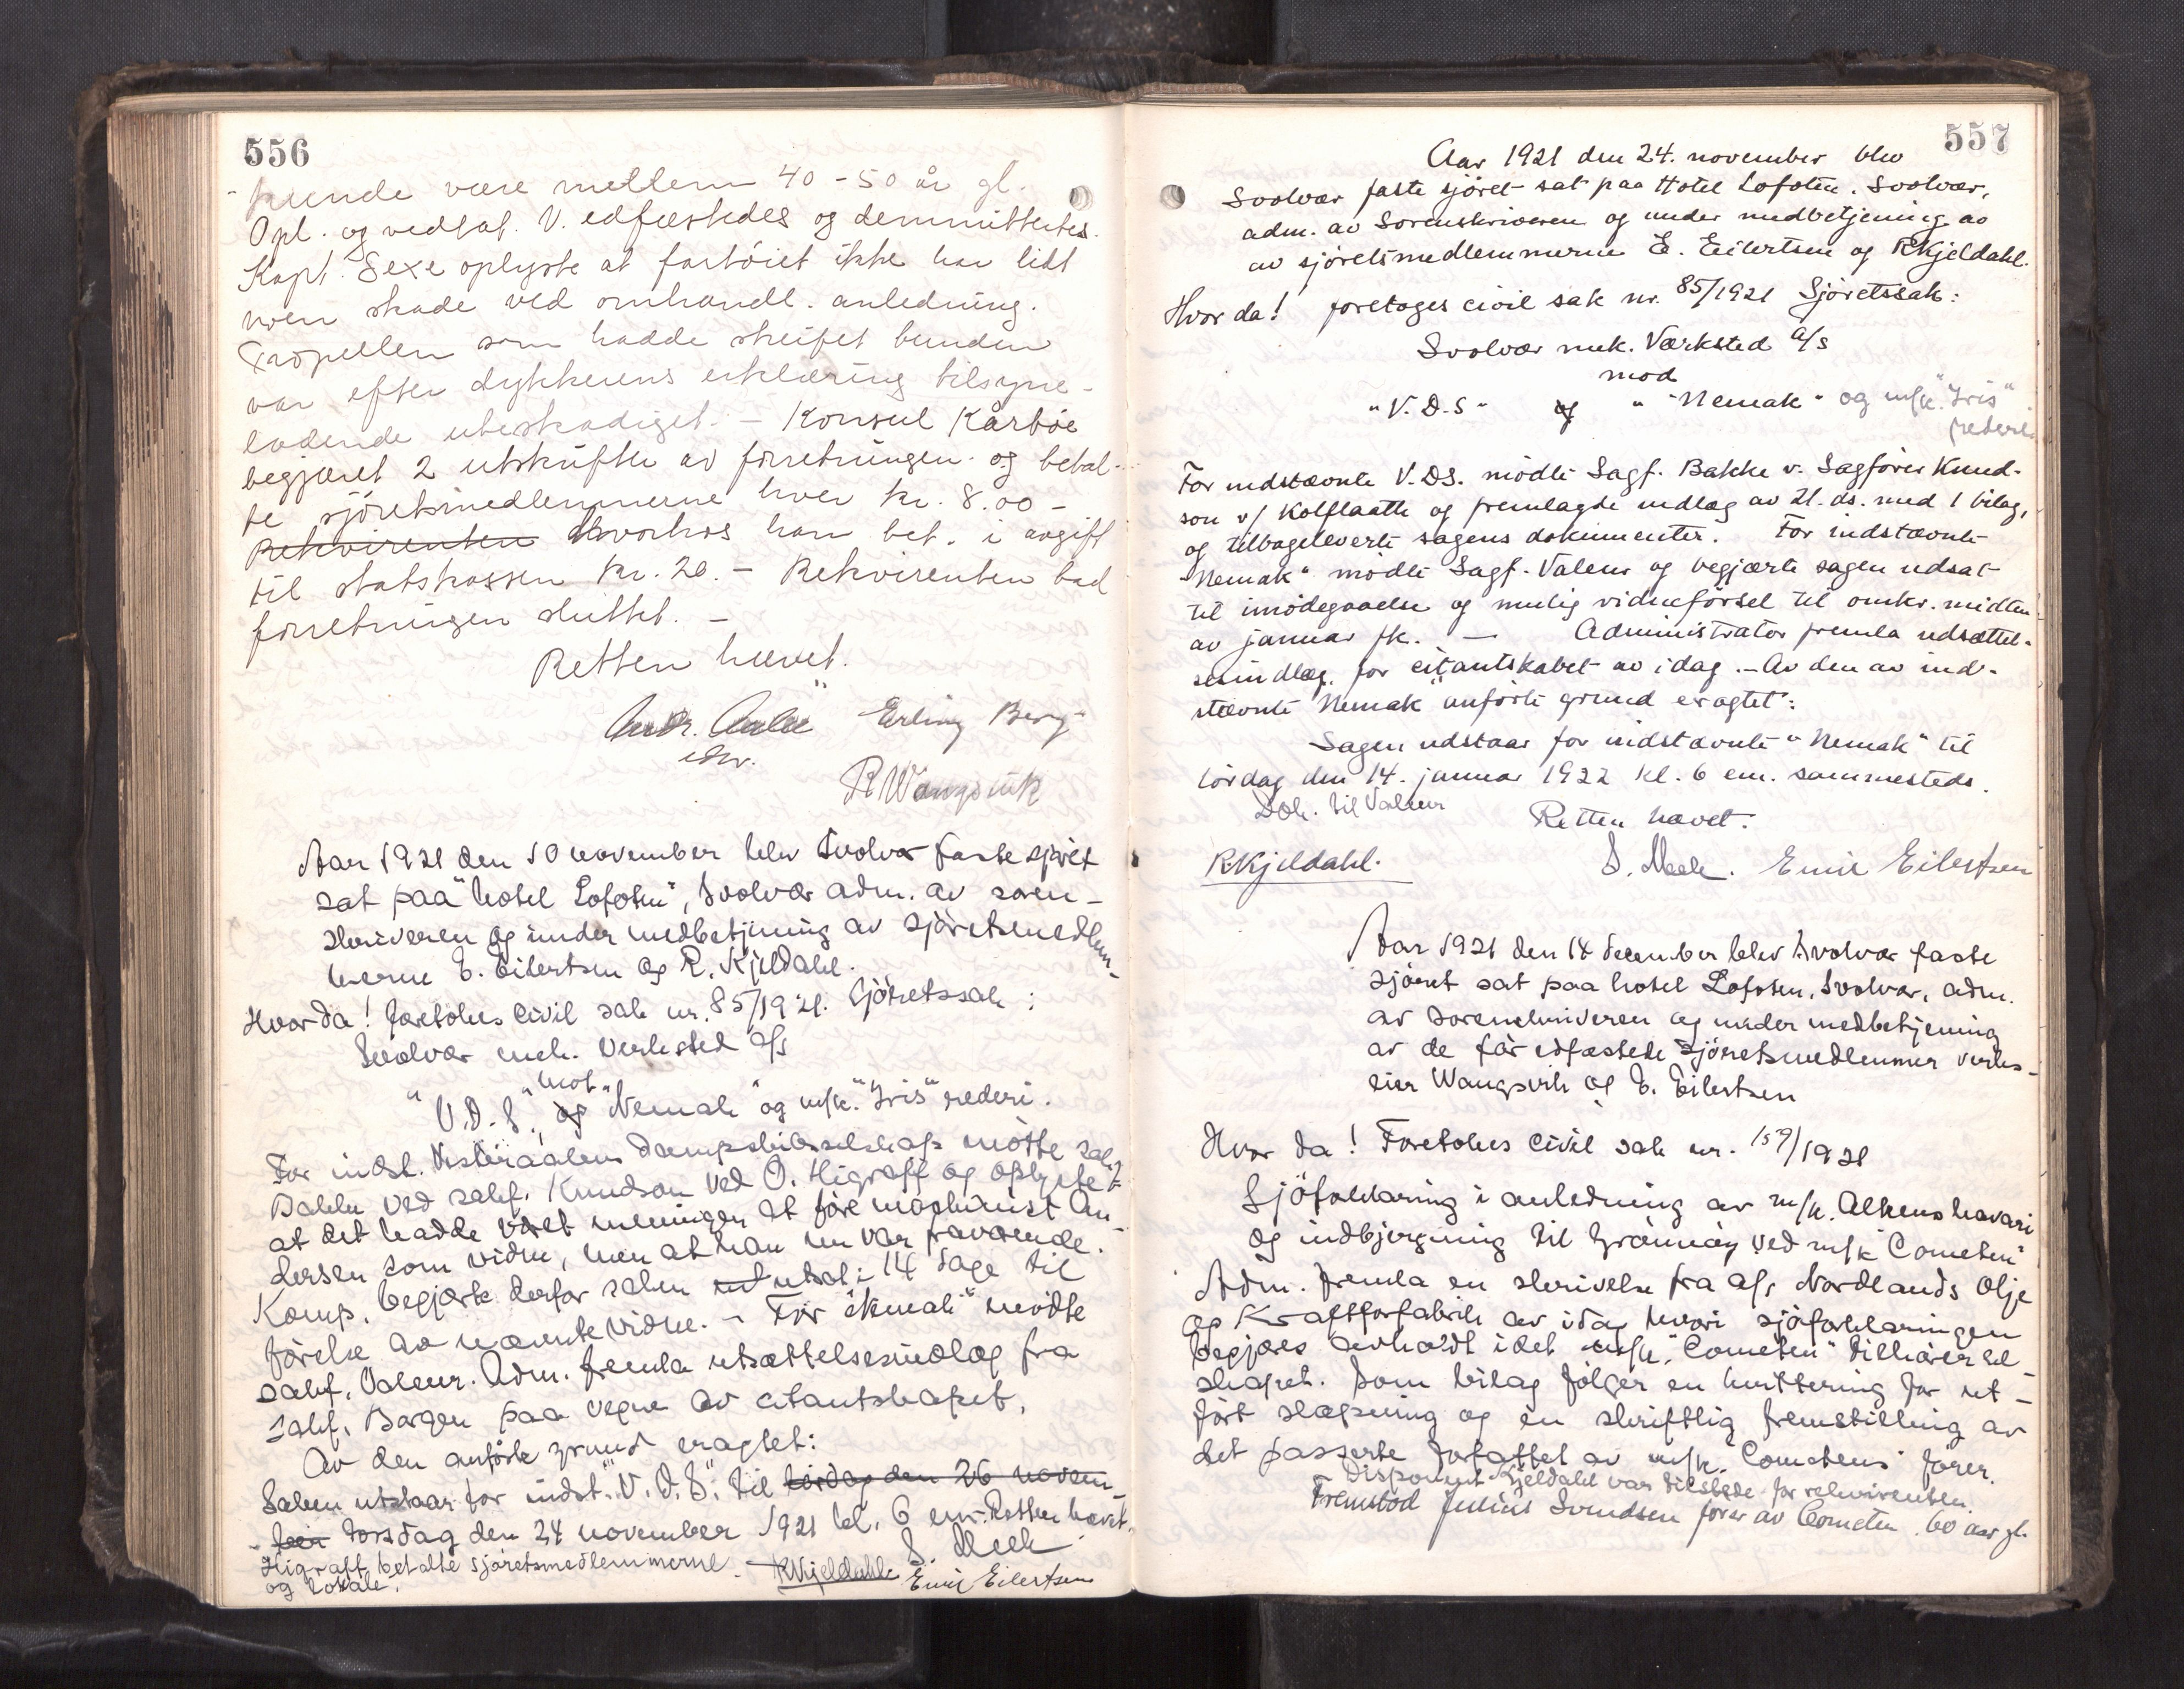 556
kunde være mellem 40-50 år gl.
Opl. og vedtat. V. edfæstedes og demmittertes.
Kapt. Sexe oplyste at fartöiet ikke har lidt
noen skade ved omhandl. anledning.
Propellen som hadde streifet bunden
var efter dykkerens erklæring tilsyne-
ladende ubeskadiget. - Konsul Kårböe
begjæret 2 utskrifter av forretningen og betal-
te sjöretsmedlemmerne hver kr. 8.00 -
Rekvirenten hvorhos han bet. i avgift
til statskassen kr. 20. - Rekvirenten bad
forretningen sluttet. -
Retten hævet.
Erling Berg
R Wangsvik
Aar 1921 den 10 november blev Svolvær faste sjöret
sat paa "hotel Lofoten", Svolvær adm. av soren-
skriveren og under medbetjening av sjöretsmedlem-
merne E. Eilertsen og R. Kjeldahl.
Hvor da! foretokes civil sak nr. 85/1921. Sjöretssak:
Svolvær mek. Verksted A/S
mot
"V.D.S.", og "Nemak" og m/k. "Iris" rederi.
For indst. Vesteraalens Dampskibsselskap mötte sakf.
Bakke ved sakf. Knudson ved O. Higraff og oplyste
at det hadde været meningen at före maskinist An-
dersen som vidne, men at han nu var fraværende.
Komp. begjærte derfor saken ut utsat i 14 dage til
förelse av nævnte vidne. - For "Nemak" mödte
sakf. Valeur. Adm. fremla utsættelsesindlæg fra
sakf. Borgen paa vegne av citantskapet.
Av den anförte grund eragtet:
Saken utstaar for indst. "V.D.S." til lördag den 26 novem-
ber torsdag den 24 november 1921 kl. 6 em. Retten hævet.
Higraff betalte sjöretsmedlemmerne
og lokale.
RKjeldahl S. Meek Emil Eilertsen
557
Aar 1921 den 24. november blev
Svolvær faste sjöret sat paa Hotel Lofoten. Svolvær,
adm. av Sorenskriveren og under medbetjening av
av sjöretsmedlemmerne E. Eilertsen og RKjeldahl.
Hvor da! foretoges civil sak nr. 85/1921 Sjöretssak:
Svolvær mek. Værksted A/S
mod
"V.D.S" og "Nemak" og m/k. "Iris"
rederi
For indstævnte V.DS. mödte Sagf. Bakke v. Sagförer Knud-
son v/ Kolflaatte og fremlagde indlæg av 21. ds. med 1 bilag,
og tilbageleverte sagens dokumenter. For indstævnte
"Nemak" mödte Sagf. Valeur og begjærte sagen udsat
til imödegaaelse og mulig vidneförsel til omkr. midten
av januar fk. - Administrator fremla udsættel-
sesindlæg for citantskabet av idag. - Av den av ind-
stævnte "Nemak" anförte grund eragtet:
Sagen udstaar for indstævnte "Nemak" til
lördag den 14. januar 1922 kl. 6 em. sammesteds.
Dok. til Valeur
Retten hævet.
RKjeldahl. S. Meek. Emil Eilertsen
Aar 1921 den 14 december blev Svolvær faste
sjöret sat paa hotel Lofoten, Svolvær, adm.
av sorenskriveren og under medbetjening
av de för edfæstede sjöretsmedlemmer verks-
eier Wangsvik og E. Eilertsen
Hvor da! Foretokes civil sak nr. 159/1921
Sjöforklaring i anledning av m/k. Alkens havari
og indbjergning til Grönnöy ved m/k "Cometen"
Adm. fremla en skrivelse fra a/s Nordlands Olje
og Kraftforfabrik av idag hvori sjöforklaringen
begjæres avholdt idet m/k. "Cometen" tilhörer sel-
skapet. Som bilag fölger en kvittering for ut-
fört slæpning og en skriftlig fremstilling av
det passerte forfattet av m/k. Cometens förer.
Disponent Kjeldahl var tilstede for rekvirenten.
Fremstod Julius Svendsen förer av Cometen 60 aar gl.